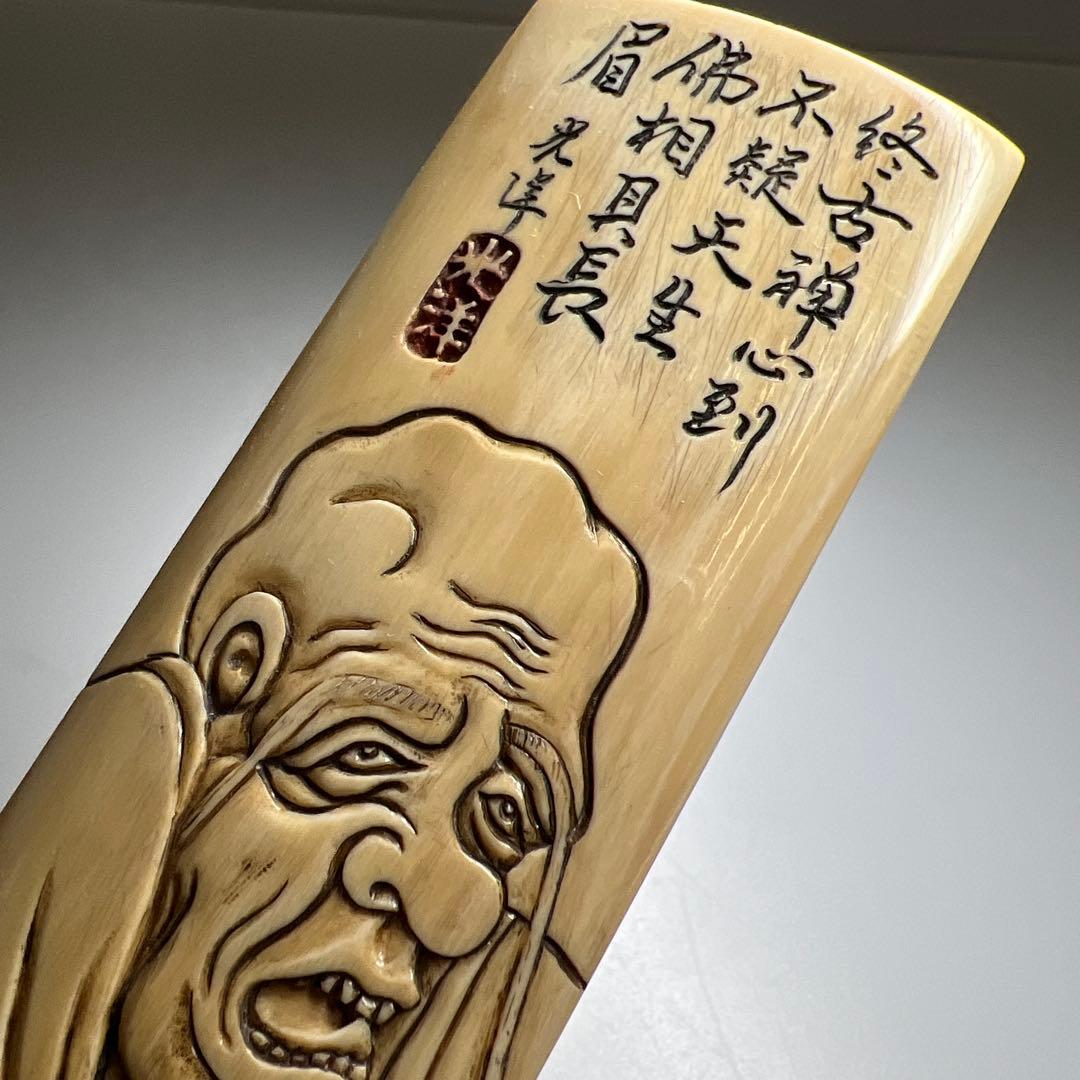 終古禅心到
不疑天生
佛相具長
眉
光洋
光洋